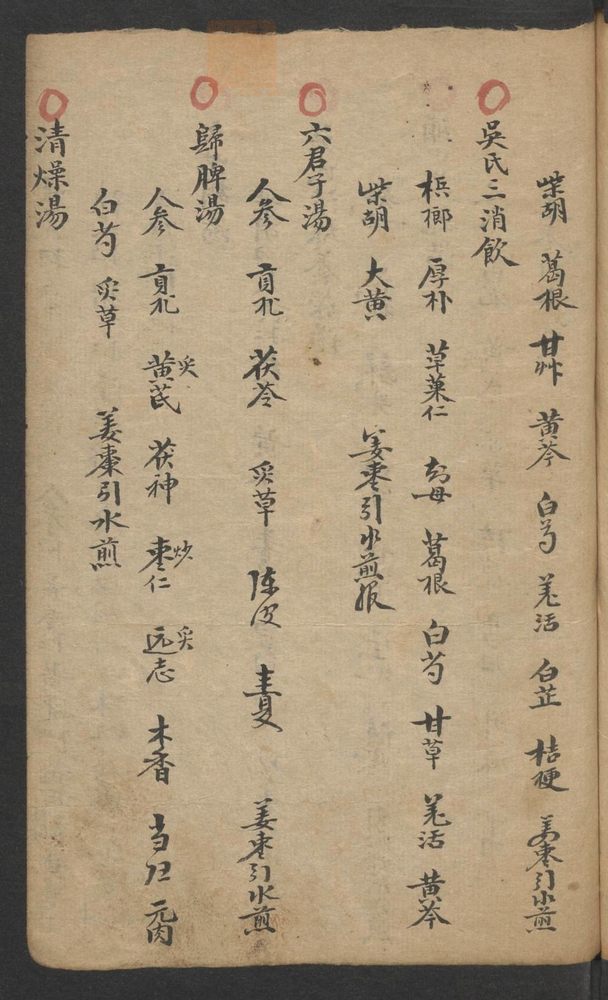 柴胡 葛根 甘艸 黄芩 白芍 羌活 白芷 桔梗 姜枣引水煎
吳氏三消飲
梹榔 厚朴 草菓仁 知母 葛根 白芍 甘草 羌活 黄芩
柴胡 大黄 姜枣引水煎服
六君子湯
人参 茯苓 炙草 陈皮 姜枣引水煎
歸脾湯
人参 炙黄芪 茯神 炒枣仁 炙远志 木香 当归 元肉
白芍 炙草 姜棗引水煎
清燥湯